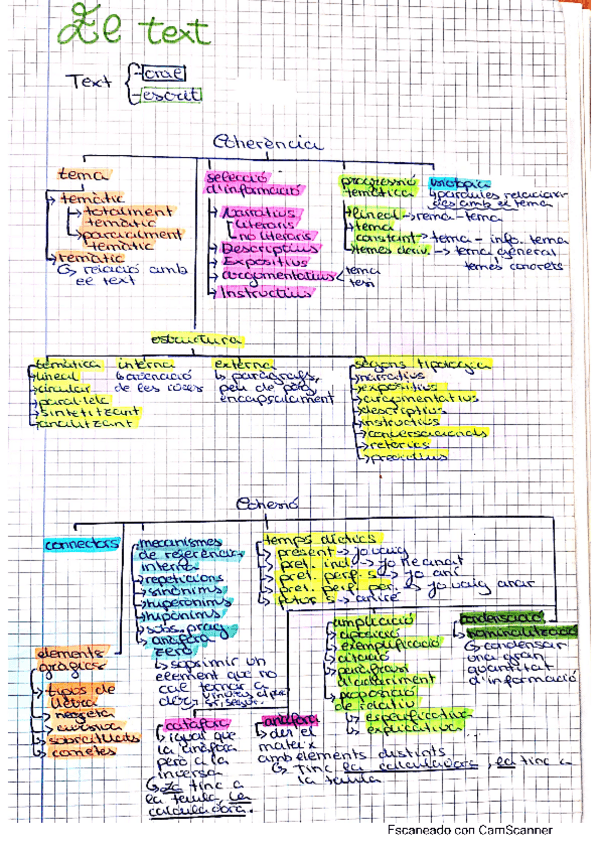 El text
Text
- oral
- escrit
Coherència
tema
→ temàtic
→ totalment
temàtic
→ parcialment
temàtic
→ remàtic
↳ relació amb
el text
selecció
d'informació
→ Narratius
literaris
no literaris
→ Descriptius
→ Expositius
→ argumentatius
tema
tesi
→ Instructius
progressió
temàtica
→ lineal → rema - tema
→ tema
constant → tema - info. tema
→ temes deriv. → tema general
temes concrets
isotopia
↳ paraules relacion-
des amb el tema
estructura
temàtica
→ lineal
→ circular
→ paral·lela
→ sintetitzant
→ analitzant
interna
↳ ordenació
de les idees
externa
↳ paràgrafs,
peu de pàg,
encapsalament
segons tipologia
→ narratius
→ expositius
→ argumentatius
→ descriptius
→ instructius
→ conversacionals
→ retòrics
→ predictius
Cohesió
connectors
mecanismes
de referència
interna
→ repeticions
→ sinònims
→ hiperònims
→ hipònims
→ subs. prag.
→ anàfora
zero
↳ suprimir un
element que no
cal tornar a
dir
temps díctics
→ present → jo vaig
→ pret. ind. → jo he anat
→ pret. perf. s → jo aní
→ pret. perf. per. → jo vaig anar
→ futur s → aniré
elements
gràfics
→ tipus de
lletra
→ negreta
→ cursiva
→ subratllats
→ cometes
amplicació
→ aposició
→ exemplificació
→ citació
→ incís
d'aclariment
→ proposició
de relatiu
→ especificativa
→ explicativa
condensació
→ nominalització
↳ condensar
una gran
quantitat
d'informació
catàfora
↳ igual que
la anàfora
però a la
inversa
↳ La tinc a
la taula la
calculadora.
anàfora
↳ dir el
mateix
amb elements distints
↳ Tinc la calculadora, la tinc a
la taula
Escaneado con CamScanner